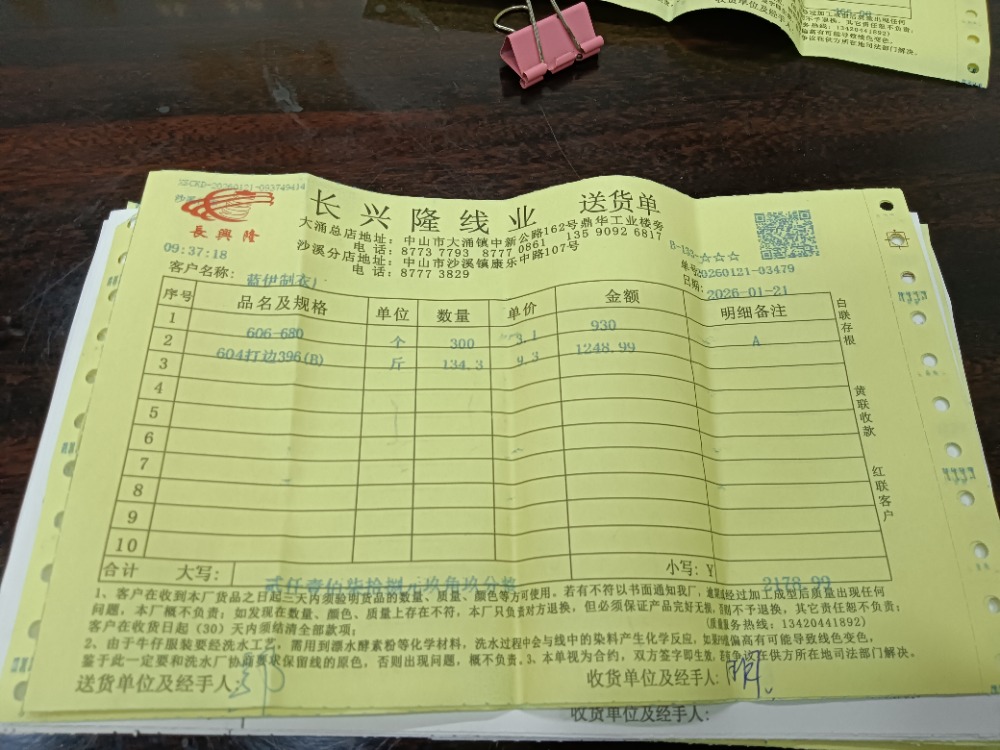 XSCKD-20260121-093749414
長興隆
长兴隆线业 送货单
大涌总店地址：中山市大涌镇中新公路162号鼎华工业楼旁
电话：8773 7793 8777 0861 135 9092 6817
沙溪分店地址：中山市沙溪镇康乐中路107号
电话：8777 3829
09:37:18
B-133-☆☆☆
单号:20260121-03479
客户名称：蓝伊制衣厂
日期：2026-01-21
序号 品名及规格 单位 数量 单价 金额 明细备注
1 606-680 个 300 3.1 930 A
2 604打边396(B) 斤 134.3 9.3 1248.99
3
4
5
6
7
8
9
10
合计 大写：贰仟壹佰柒拾捌元玖角玖分整 小写：￥2178.99
白联存根
黄联收款
红联客户
1、客户在收到本厂货品之日起三天内须验明货品的数量、质量、颜色等方可使用。若有不符以书面通知我厂，
经过加工成型后质量出现任何
问题，本厂概不负责；如发现在数量、颜色、质量上存在不符，本厂只负责对方退换，但必须保证产品完好无损，
不予退换，其它责任恕不负责；
客户在收货日起（30）天内须结清全部款项；
服务热线：13420441892）
2、由于牛仔服装要经洗水工艺，需用到漂水酵素粉等化学材料，洗水过程中会与线中的染料产生化学反应，如
偏高有可能导致线色变色，
鉴于此一定要和洗水厂协商要求保留线的原色，否则出现问题，概不负责。3、本单视为合约，双方签字即生效，
争议在供方所在地司法部门解决。
送货单位及经手人：
收货单位及经手人：
收货单位及经手人：
收货单位及经手人
过加工成型后质量出现任何
不予退换，其它责任恕不负责；
务热线：13420441892）
偏高有可能导致线色变色，
争议在供方所在地司法部门解决。